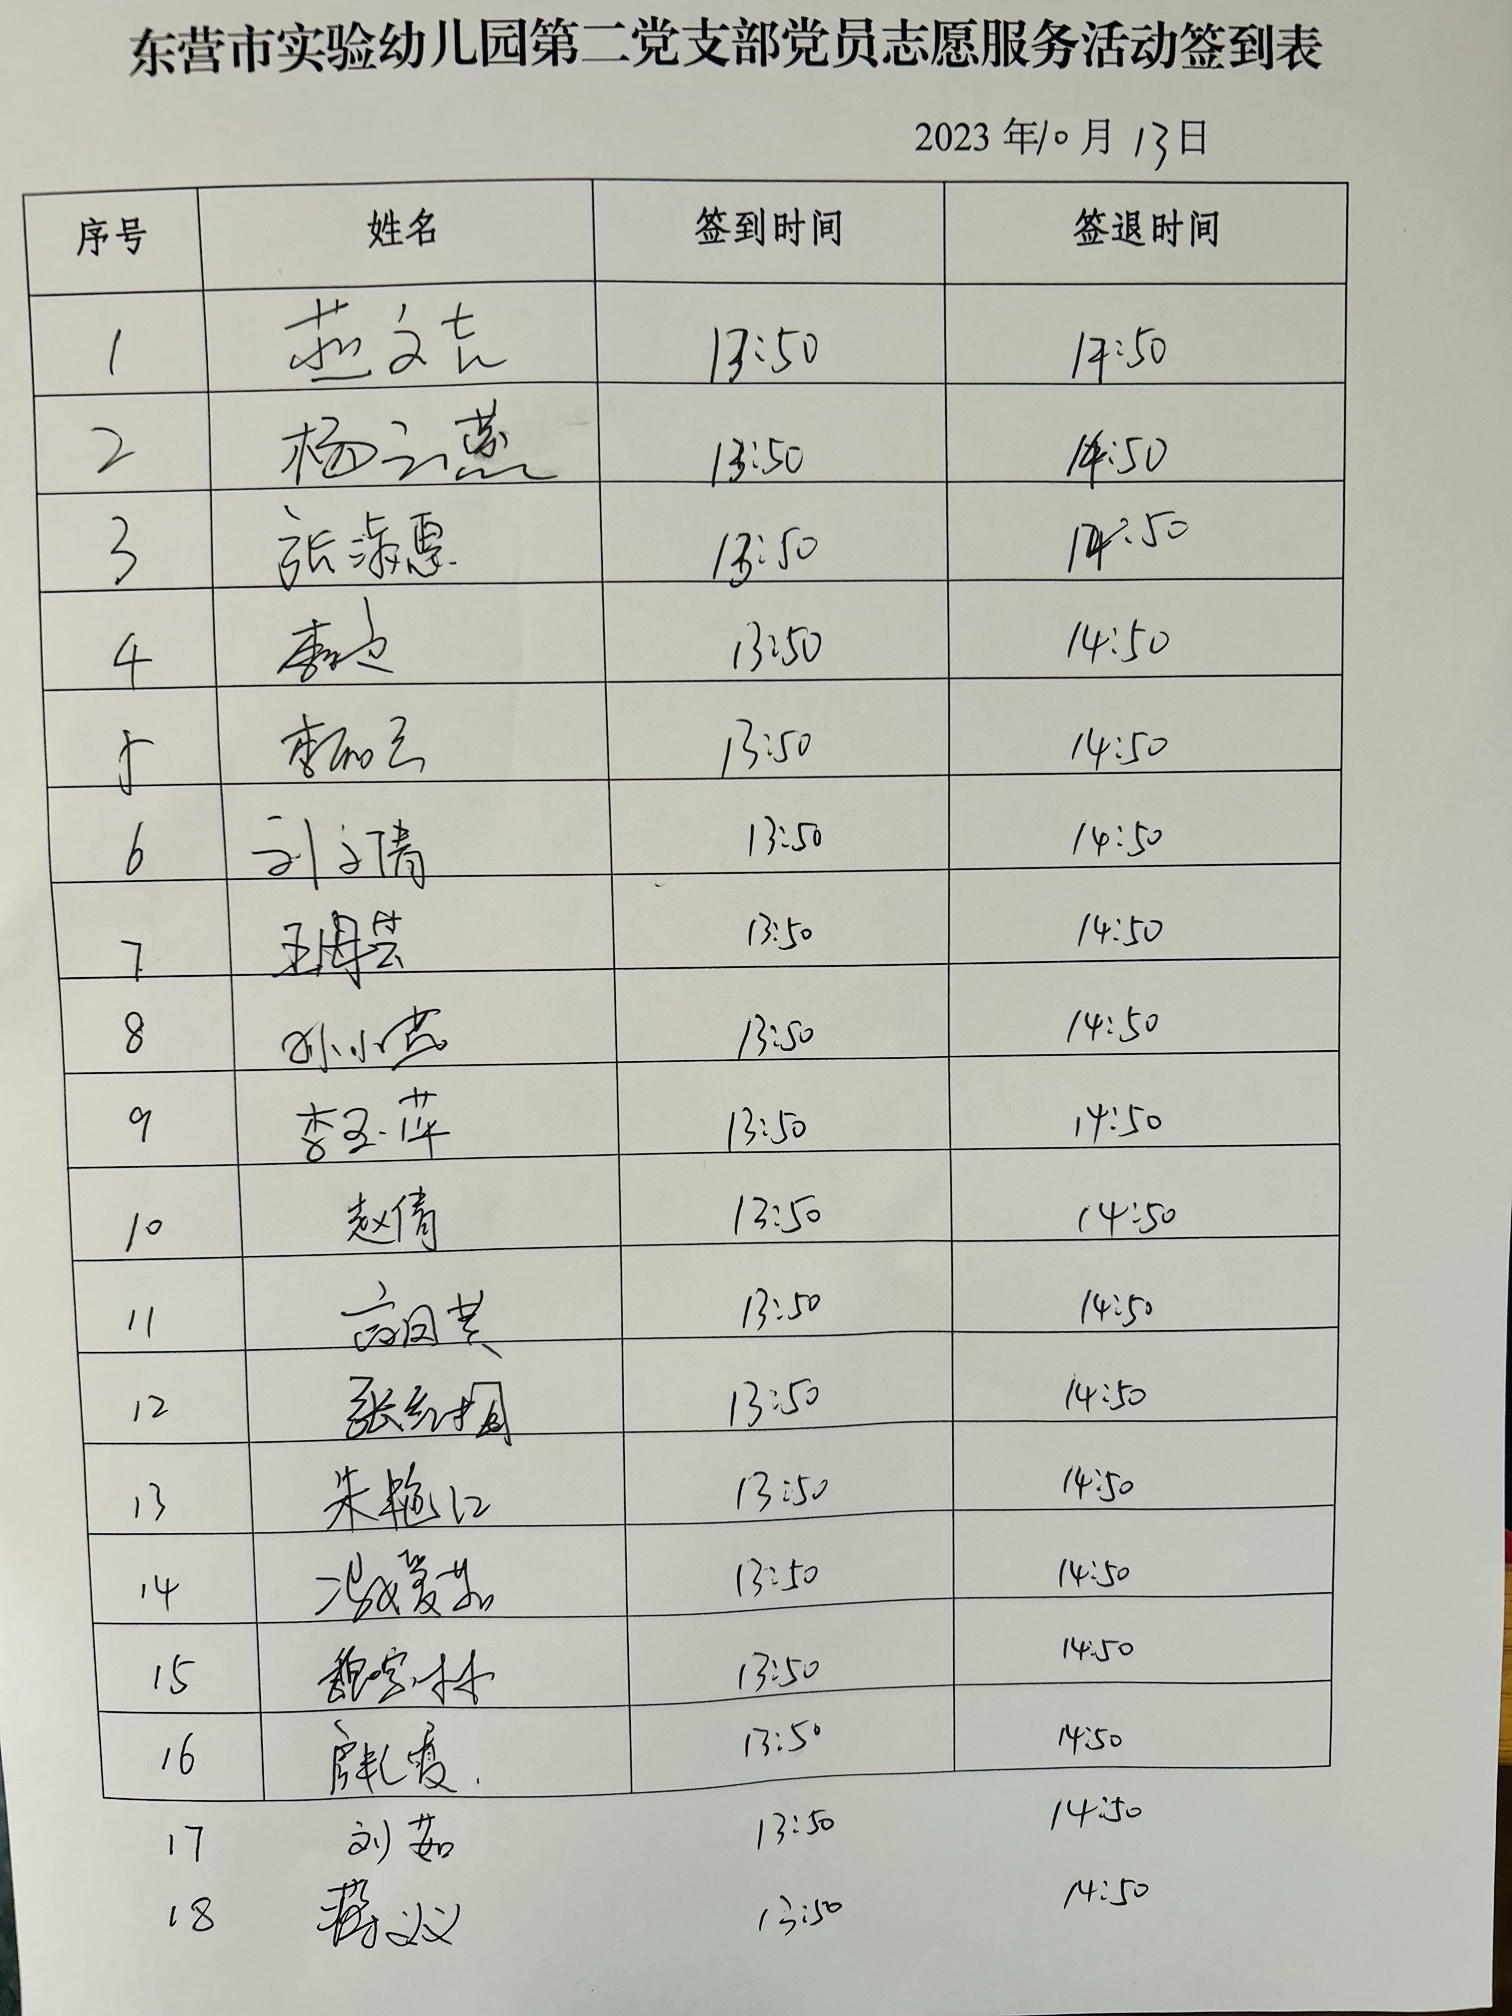 东营市实验幼儿园第二党支部党员志愿服务活动签到表
2023年10月13日
序号 姓名 签到时间 签退时间
1 燕文吉 13:50 14:50
2 杨云燕 13:50 14:50
3 张淑惠 13:50 14:50
4 13:50 14:50
5 李 13:50 14:50
6 刘文倩 13:50 14:50
7 王 芸 13:50 14:50
8 孙小燕 13:50 14:50
9 李玉萍 13:50 14:50
10 赵倩 13:50 14:50
11 13:50 14:50
12 张 13:50 14:50
13 朱艳红 13:50 14:50
14 冯爱茹 13:50 14:50
15 魏 林 13:50 14:50
16 霞 13:50 14:50
17 刘茹 13:50 14:50
18 蒋义 13:50 14:50